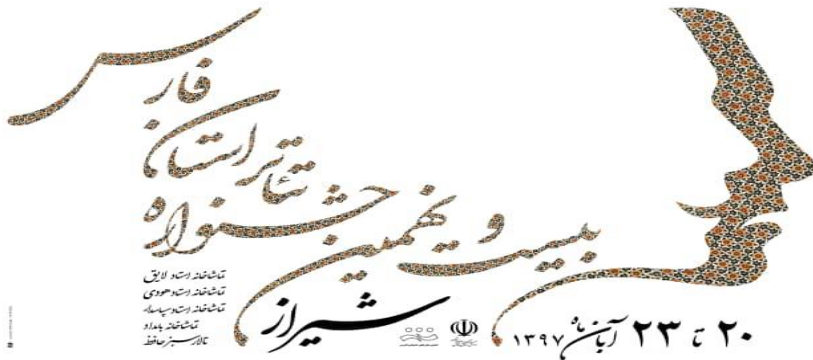 بیست و نهمین
جشنواره
تئاتر استان
فارس
شیراز
۲۰ تا ۲۳ آبان ماه ۱۳۹۷
تماشاخانه استاد لایق
تماشاخانه استاد هودی
تماشاخانه استاد سپاسدار
تماشاخانه بامداد
تالار سبز حافظ